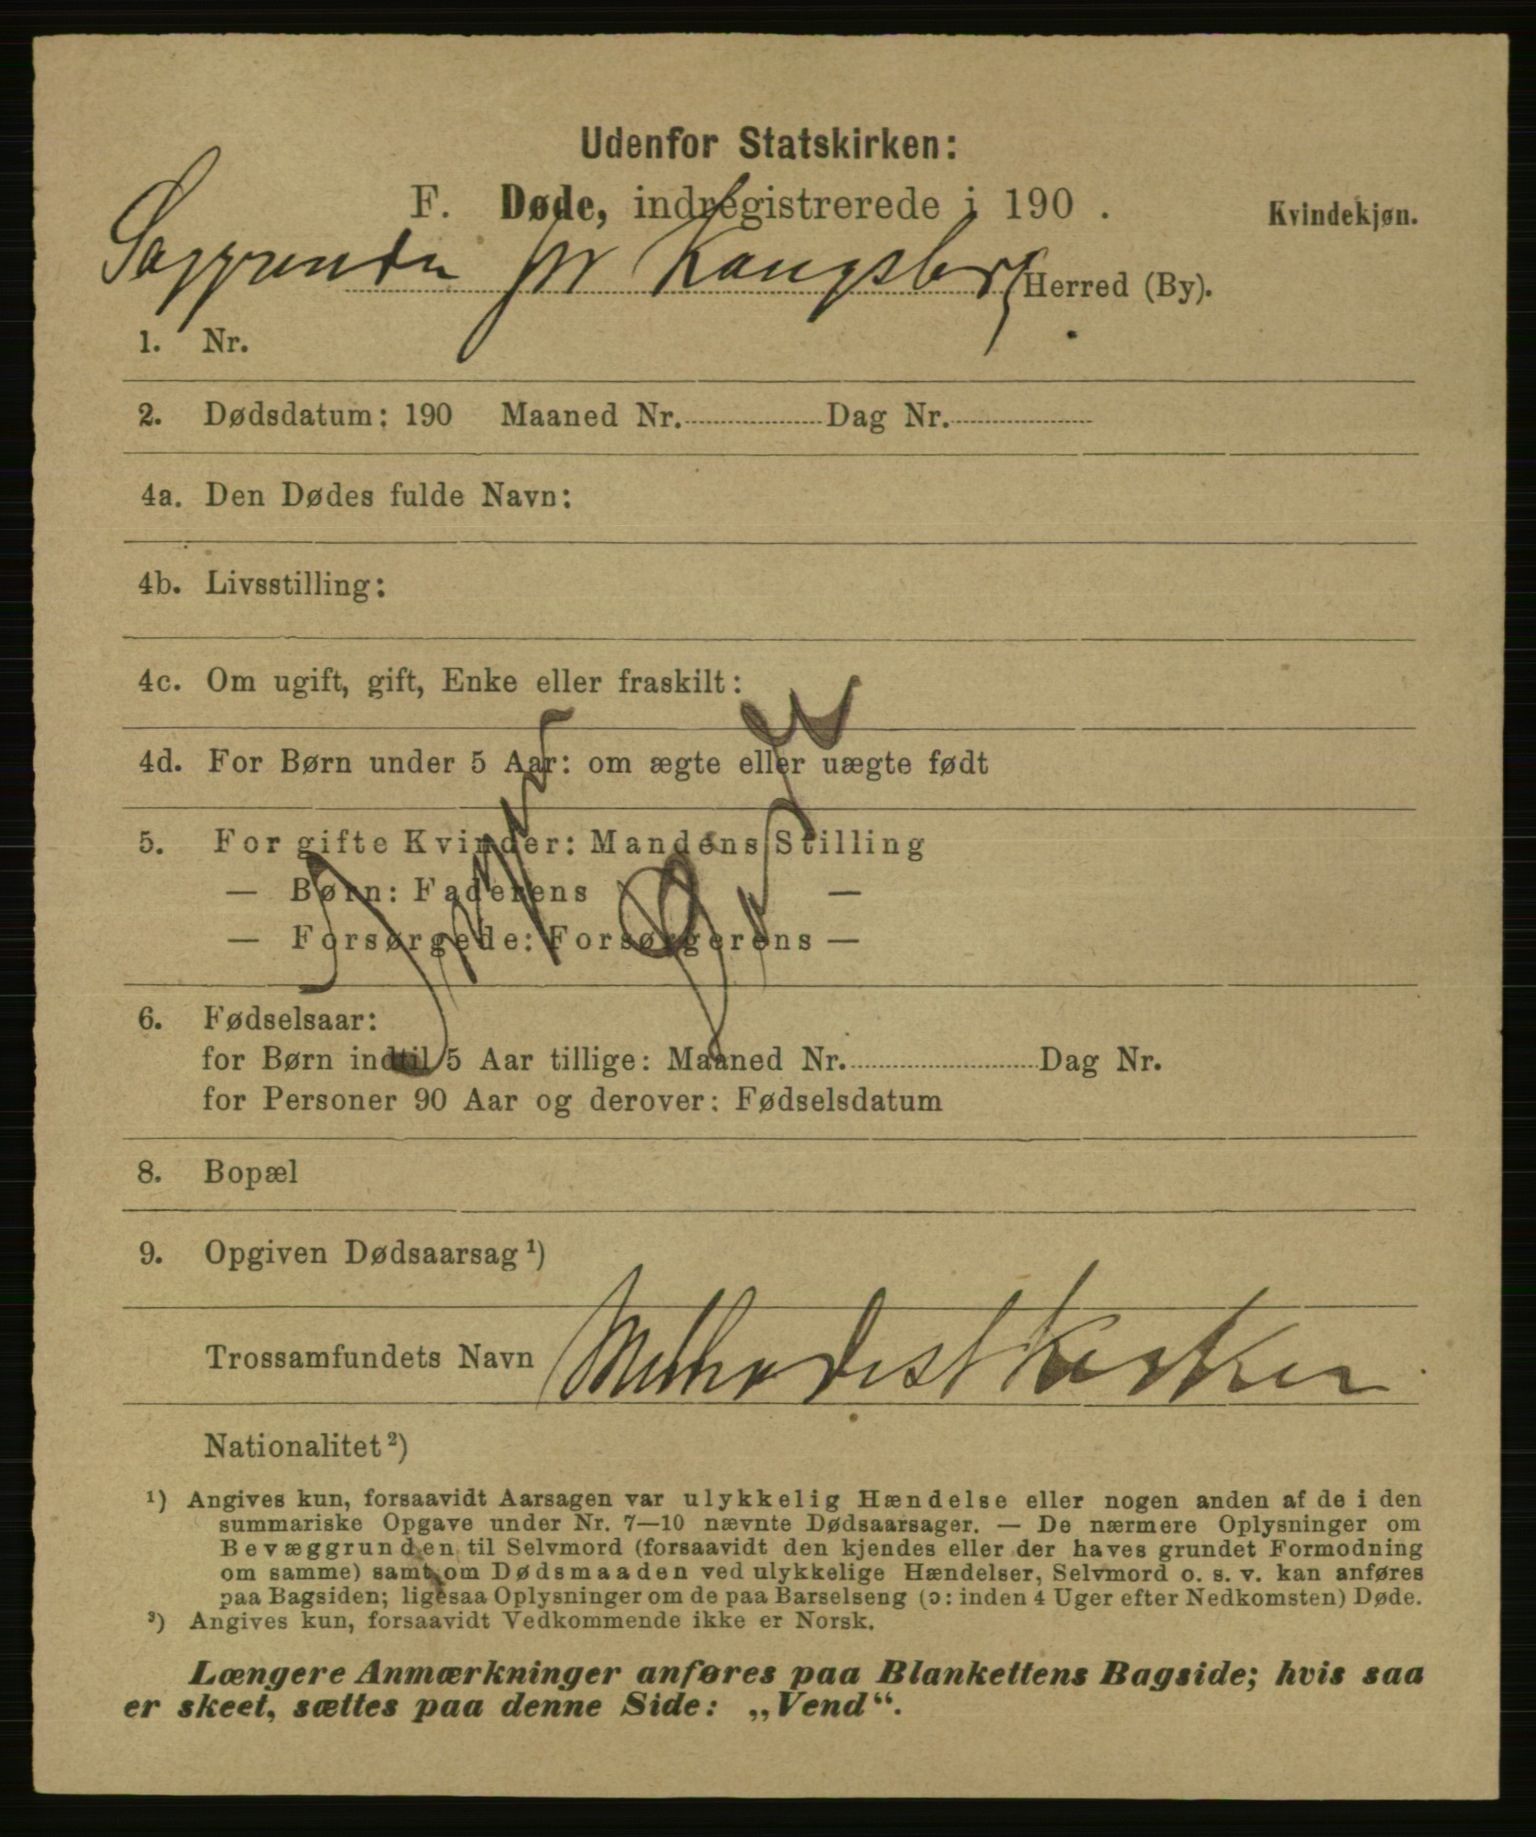 Udenfor Statskirken:
F. Døde, indregistrerede i 190 .
Kvindekjøn.
Saggrenda pr Kongsberg Herred (By).
1. Nr.
2. Dødsdatum: 190 Maaned Nr. Dag Nr.
4a. Den Dødes fulde Navn:
4b. Livsstilling:
4c. Om ugift, gift, Enke eller fraskilt:
4d. For Børn under 5 Aar: om ægte eller uægte født
5. For gifte Kvinder: Mandens Stilling
— Børn: Faderens —
— Forsørgede: Forsørgerens —
6. Fødselsaar:
for Børn indtil 5 Aar tillige: Maaned Nr. Dag Nr.
for Personer 90 Aar og derover: Fødselsdatum
8. Bopæl
9. Opgiven Dødsaarsag ¹)
Trossamfundets Navn Methodistkirken
Nationalitet ²)
¹) Angives kun, forsaavidt Aarsagen var ulykkelig Hændelse eller nogen anden af de i den
summariske Opgave under Nr. 7—10 nævnte Dødsaarsager. — De nærmere Oplysninger om
Bevæggrunden til Selvmord (forsaavidt den kjendes eller der haves grundet Formodning
om samme) samt om Dødsmaaden ved ulykkelige Hændelser, Selvmord o. s. v. kan anføres
paa Bagsiden; ligesaa Oplysninger om de paa Barselseng (ɔ: inden 4 Uger efter Nedkomsten) Døde.
³) Angives kun, forsaavidt Vedkommende ikke er Norsk.
Længere Anmærkninger anføres paa Blankettens Bagside; hvis saa
er skeet, sættes paa denne Side: „Vend“.